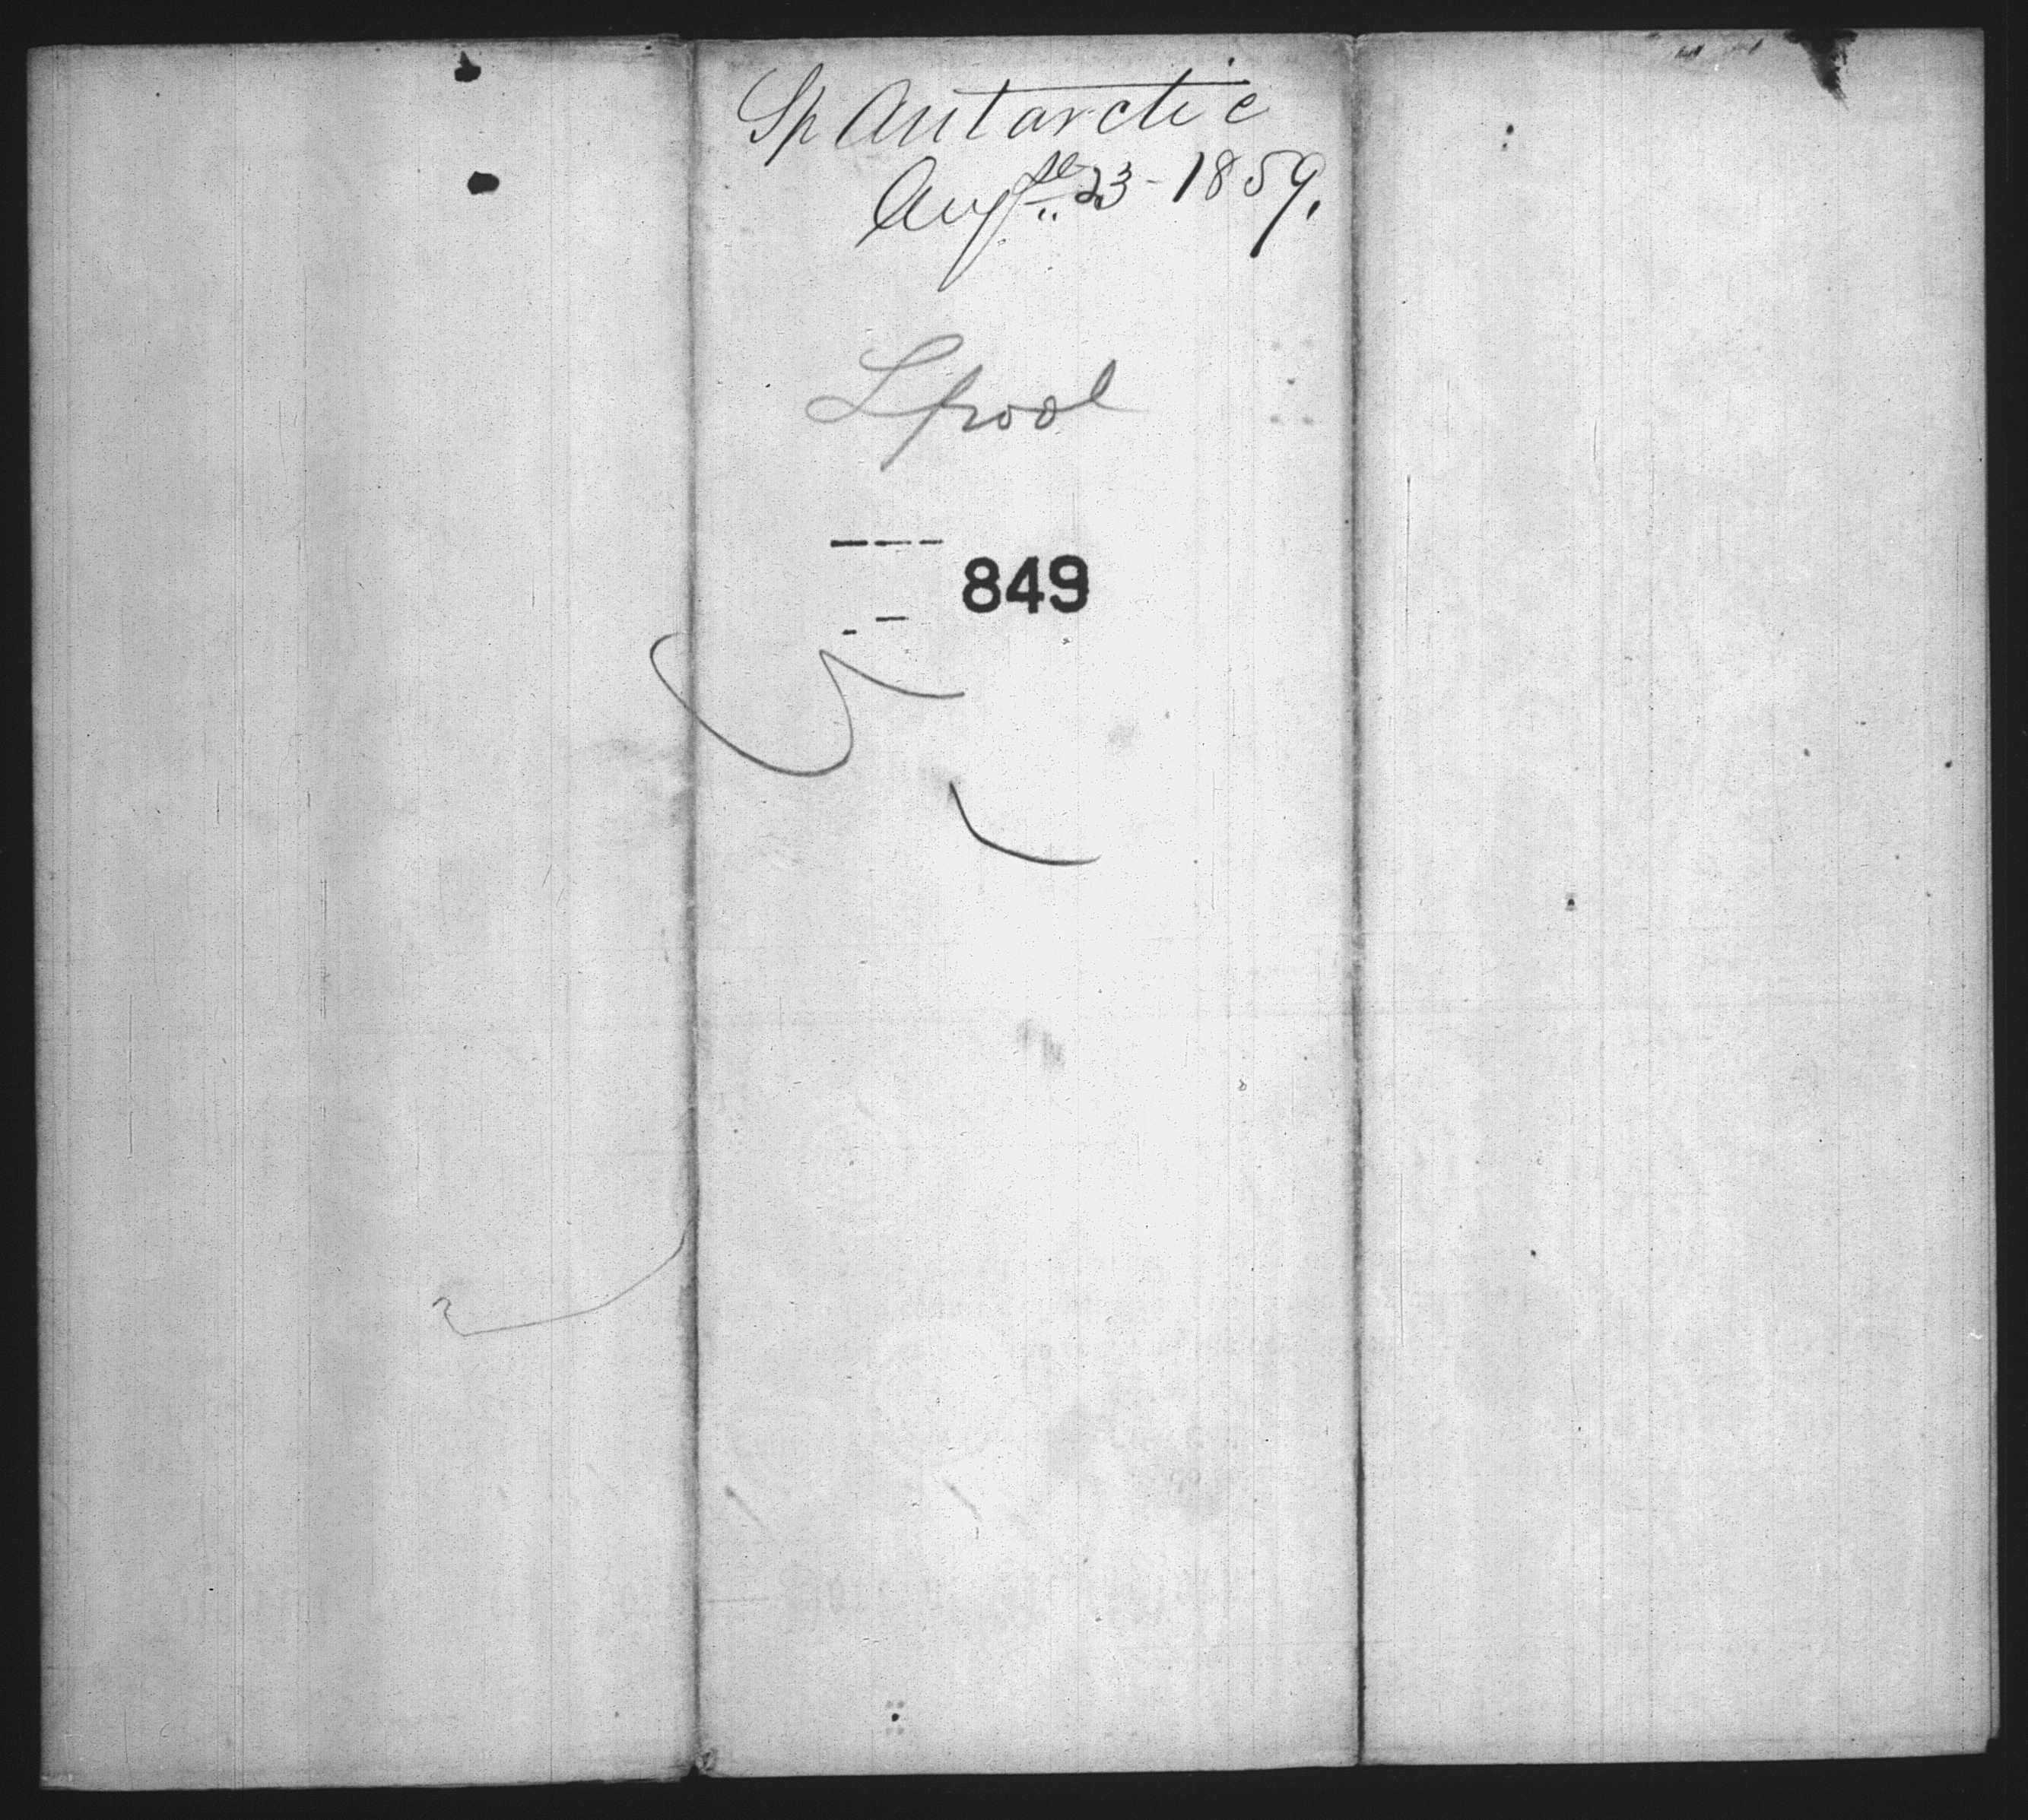 Sp Antarctic
Augst 23 - 1859.
Lpool
849